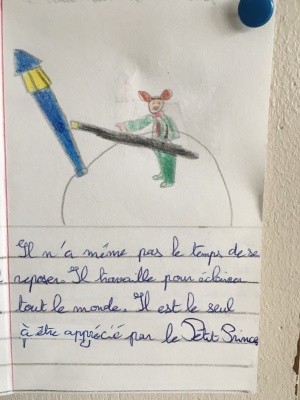 Il n'a même pas le temps de se
reposer. Il travaille pour éclairer
tout le monde. Il est le seul
à être apprécié par le Petit Prince